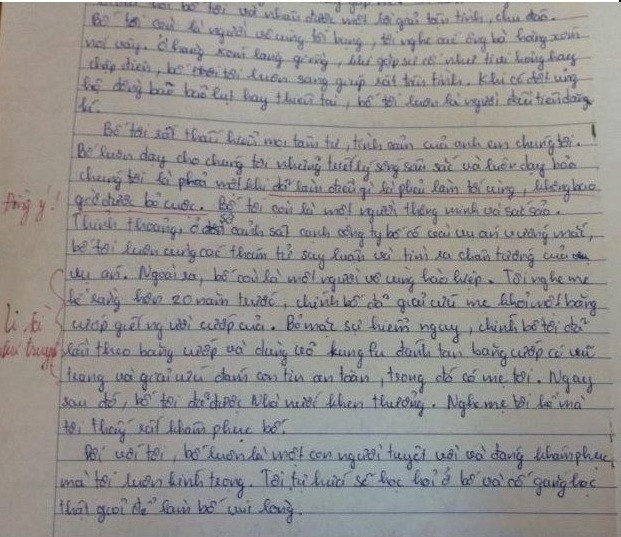 bố tôi và nhận được một lời giải tận tình, chu đáo.
Bố tôi còn là người vô cùng tốt bụng, tôi nghe các ông bà hàng xóm
nói vậy. Ở hàng xóm láng giềng, khi gặp sự cố như tivi hỏng hay
chập điện, bố tôi luôn sang giúp rất tận tình. Khi có đợt ủng
hộ đồng bào bão lụt hay thiên tai, bố tôi luôn là người đầu tiên đăng
kí.
Bố tôi rất thấu hiểu mọi tâm tư, tình cảm của anh em chúng tôi.
Bố luôn dạy cho chúng tôi những triết lý sống sâu sắc và luôn dạy bảo
chúng tôi là phải một khi đã làm điều gì là phải làm tới cùng, không bao
Đồng ý!
giờ được bỏ cuộc. Bố tôi còn là một người thông minh và sắc sảo.
Thỉnh thoảng, ở sở cảnh sát cạnh công ty bố có vài vụ án vướng mắc,
bố tôi luôn cùng các thám tử suy luận và tìm ra chân tướng của
vụ án. Ngoài ra, bố còn là một người vô cùng hào hiệp. Tôi nghe mẹ
kể rằng hơn 20 năm trước, chính bố đã giải cứu mẹ khỏi một băng
Li kì
cướp giết người cướp của. Bỏ mặc sự hiểm nguy, chính bố tôi đã
truyện
lần theo băng cướp và dùng võ kungfu đánh tan băng cướp có vũ
trang và giải cứu đám con tin an toàn, trong đó có mẹ tôi. Ngay
sau đó, bố tôi đã được Nhà nước khen thưởng. Nghe mẹ tôi kể mà
tôi thấy rất khâm phục bố.
Đối với tôi, bố luôn là một con người tuyệt vời và đáng khâm phục
mà tôi luôn kính trọng. Tôi tự hứa sẽ học hỏi ở bố và cố gắng học
thật giỏi để làm bố vui lòng.